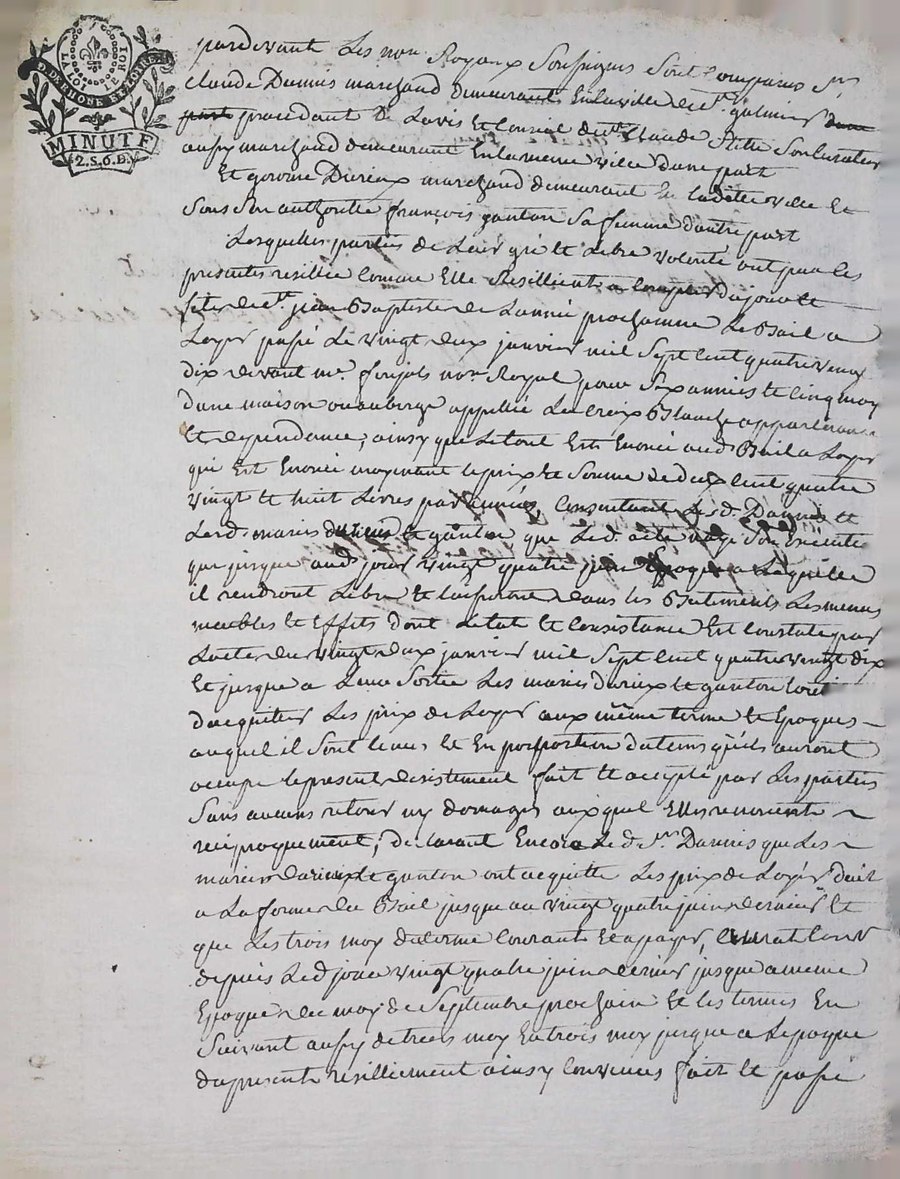 LA LOI LE ROI
D. DE RHONE ET LOIRE
MINUTE
2.S.6.D.
pardevant Les nore. Royaux Soussignés Sont Comparus Sr.
claude Dannis marchand demeurant En la ville de St. galmier dune
part procedant de Lavis et Conseil de Sr. Claude Son Curateur
aussy marchand demeurant En la meme ville dune part
Et marchand demeurant En ladette ville Et
Sous Son authorité françois ganton Sa femme dautre part
Lesquelles parties de Leur gré et Libre volonté ont par les
presentes resillée Comme Elle Resillient a Compter du jour et
fete de St. jean Baptiste de Lannée prochainne Le Bail a
Loyer passé Le vingt deux janvier mil Sept Cent quatre vingt
dix devant me. nore. Royal pour Six années et Cinq moy
dune maison ou auberge appellée La Croix Blanche appartenances
Et dependance, ainsy que Le tout Est Enoncé aud Bail a Loyer
qui Est Enoncé moyennant le prix Et Somme de deux Cent quatre
vingt et huit Livres par année, Consentant Le d. Dannis et
Lesd. mariés durieux et ganton que Led. acte naye Son Execution
que jusque aud. jour vingt quatre juin Epoque a Laquelle
il rendront Libre et laisseront dans les Batiments Les memes
meubles et Effets dont Letat et Consistance Est Constaté par
Lacte du vingt deux janvier mil Sept Cent quatre vingt dix
Et jusque a Leur Sortie Les mariés durieux et ganton Seront
dacquiter Les prix de Loyer aux même terme et Epoques
auquel il Sont tenus et En proportion du tems quils auront
occupé le present desistement fait et accepté par Les parties
Sans aucuns retour ny domages auxquel Elles renoncent
reciproquement, declarant Encore Le d. Sr. Dannis que Les
mariés durieux et ganton ont acquitté Les prix de Loyer
a La forme du Bail jusque au vingt quatre juin dernier Et
que Les trois moy du terme Courant Et a payer,
depuis Led jour vingt quatre juin dernier jusque a meme
Epoque du moy de Septembre prochain Et les termes En
Suivant aussy de trois moy En trois moy jusque a Lepoque
du present resilliement ainsy Convenus fait Et passé